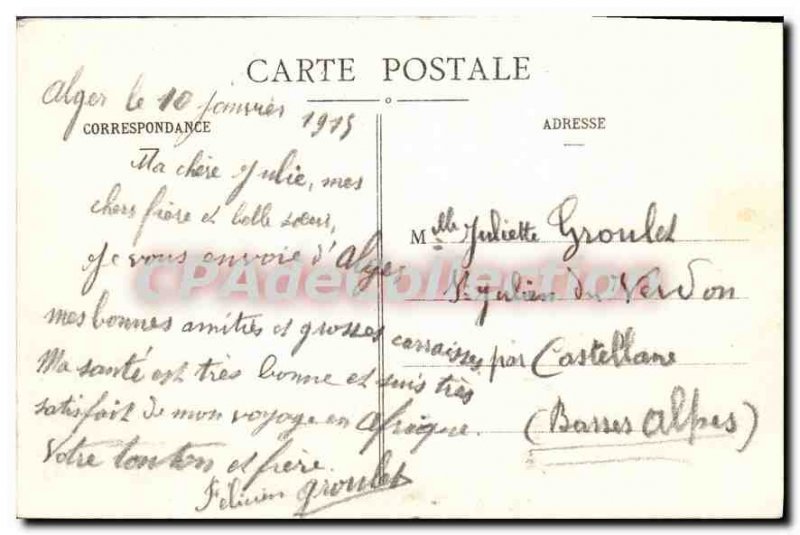 CARTE POSTALE
Alger le 10 janvier 1915
CORRESPONDANCE
Ma chère Julie, mes
chers frère et belle soeur,
Je vous envoie d'Alger
mes bonnes amitiés et grosses carraisses
Ma santé est très bonne et suis très
satisfait de mon voyage en Afrique.
Votre tonton et frère.
Félicien Groulet
ADRESSE
Mlle Juliette Groulet
St Julien du Verdon
par Castellane
(Basses Alpes)
CPAdeCollection